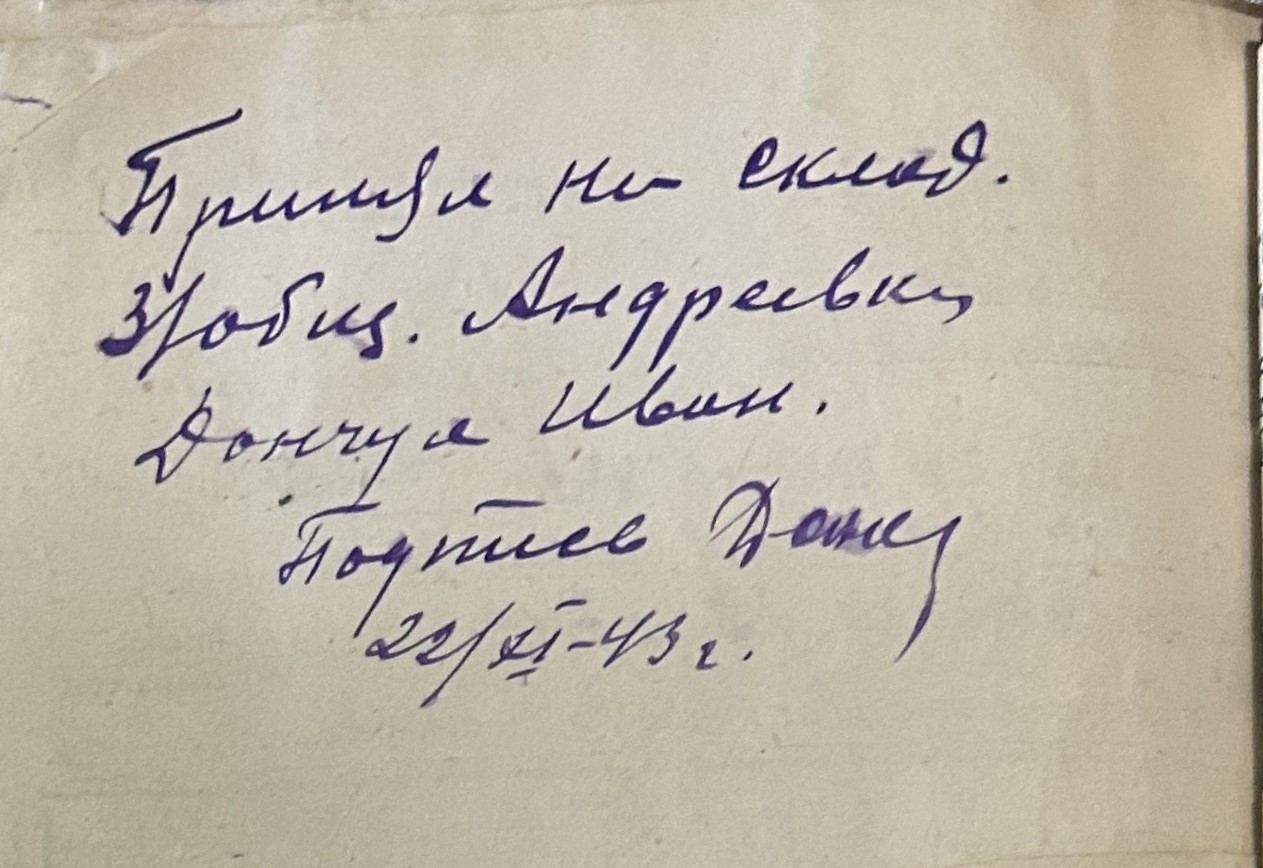 Принял на склад.
З/общ. Андреевки,
Дончул Иван.
Подпись Донч
22/XI-43 г.